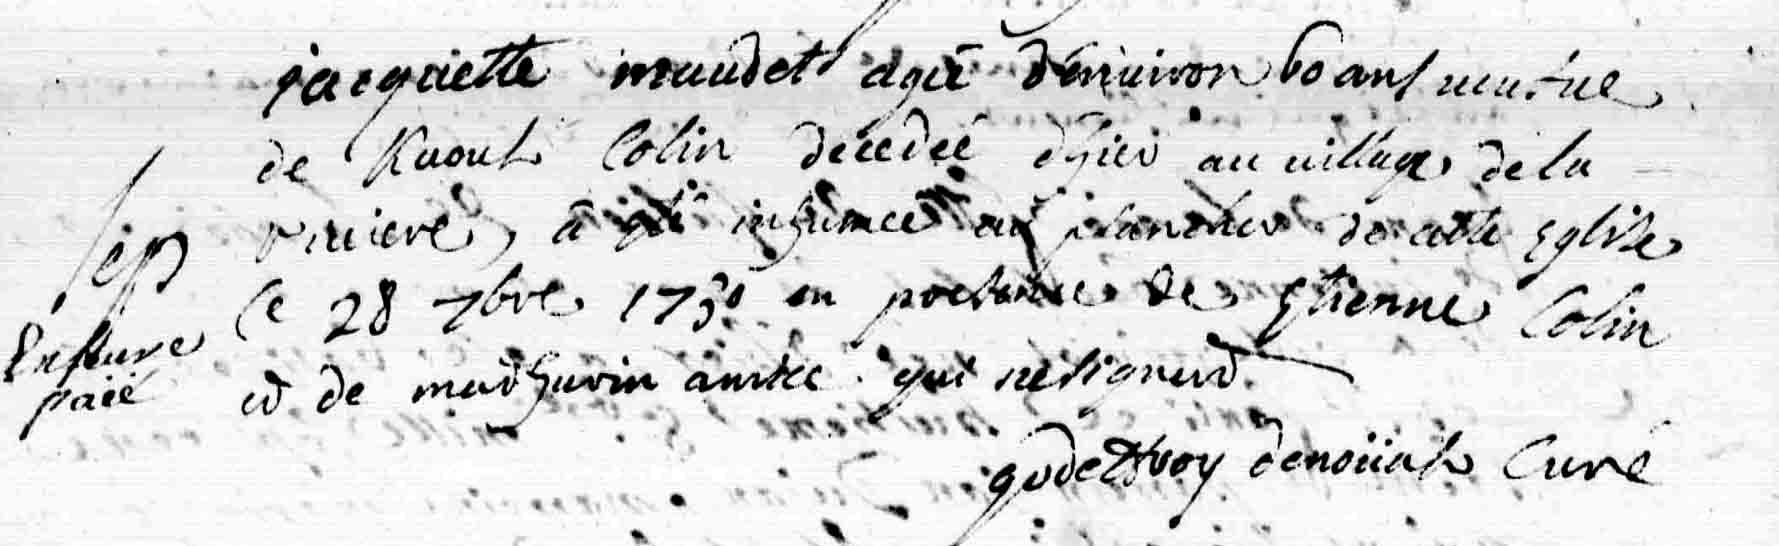 jacquette maudet agée d'environ 60 ans veufve
de Raoul Colin decedée d'hier au village de la
riviere, a été inhumée au plancher de cette Eglise
Sep
Ce 28 7bre 1730 en presence de Etienne Colin
Enfeure
paié
et de mathurin qui ne signent
godeffroy denoüal Curé